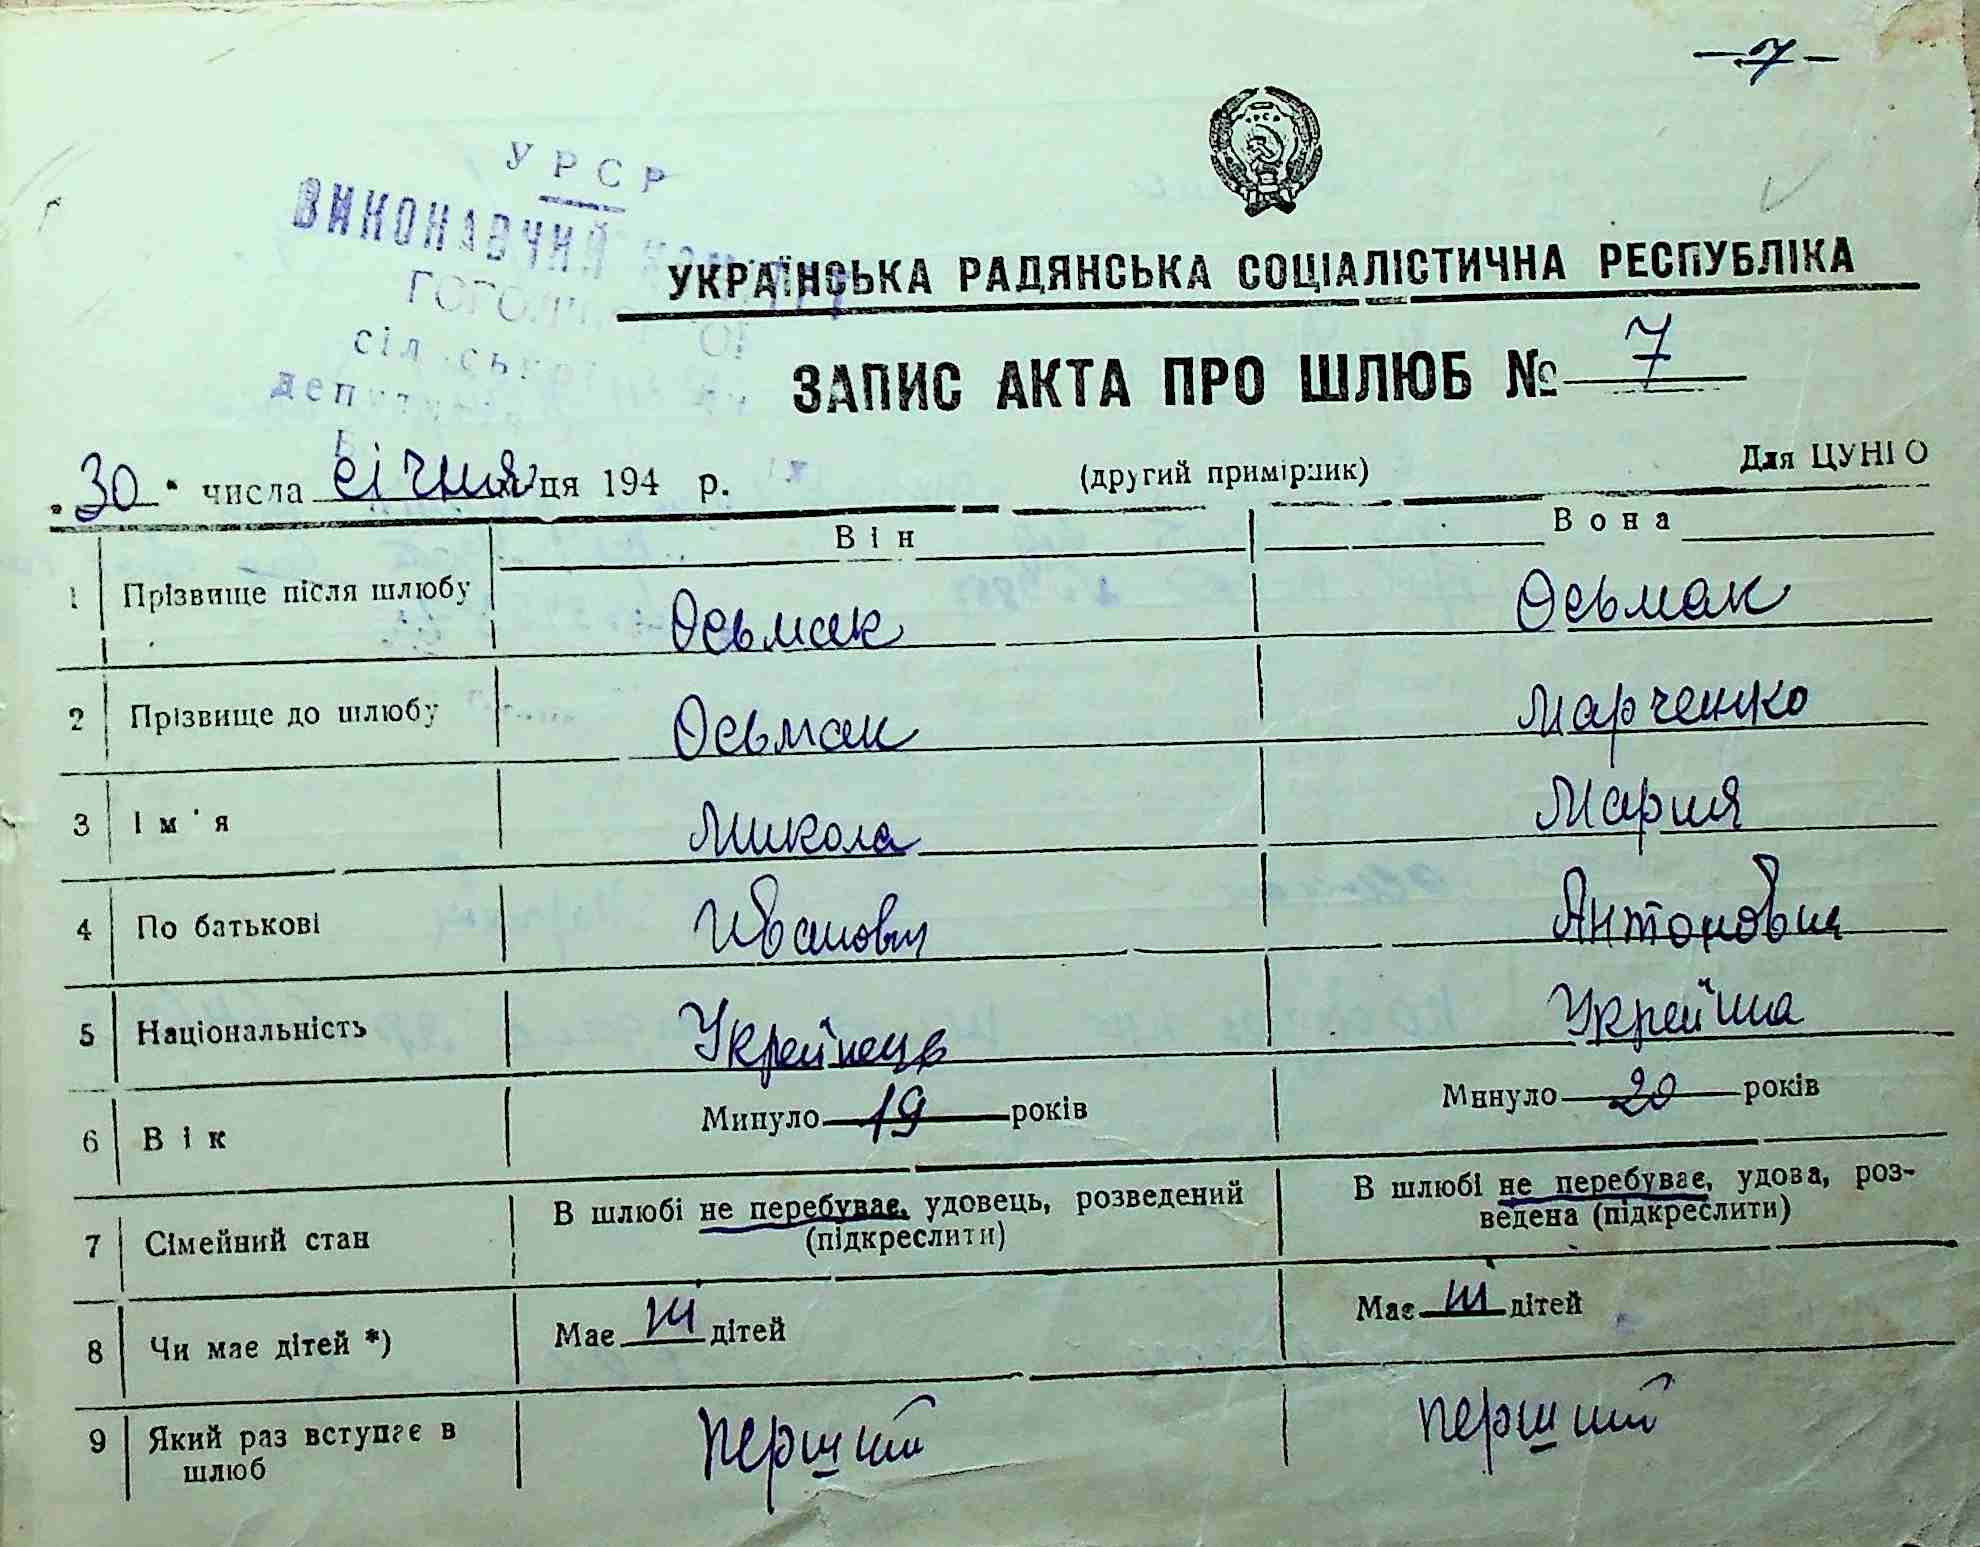 — 7 —
УРСР
УРСР
ВИКОНАВЧИЙ
УКРАЇНСЬКА РАДЯНСЬКА СОЦІАЛІСТИЧНА РЕСПУБЛІКА
ЗАПИС АКТА ПРО ШЛЮБ № 7
„30" числа січня ця 194 р. (другий примірник) Для ЦУНГО
Він Вона
1 Прізвище після шлюбу Осьмак Осьмак
2 Прізвище до шлюбу Осьмак Марченко
3 Ім'я Микола Мария
4 По батькові Иванович Антоновна
5 Національність Украйнець Українка
6 Вік Минуло 19 років Минуло 20 років
7 Сімейний стан В шлюбі не перебуває, удовець, розведений (підкреслити) В шлюбі не перебуває, удова, роз-
ведена (підкреслити)
8 Чи має дітей *) Має ні дітей Має ні дітей
9 Який раз вступає в шлюб перший перший